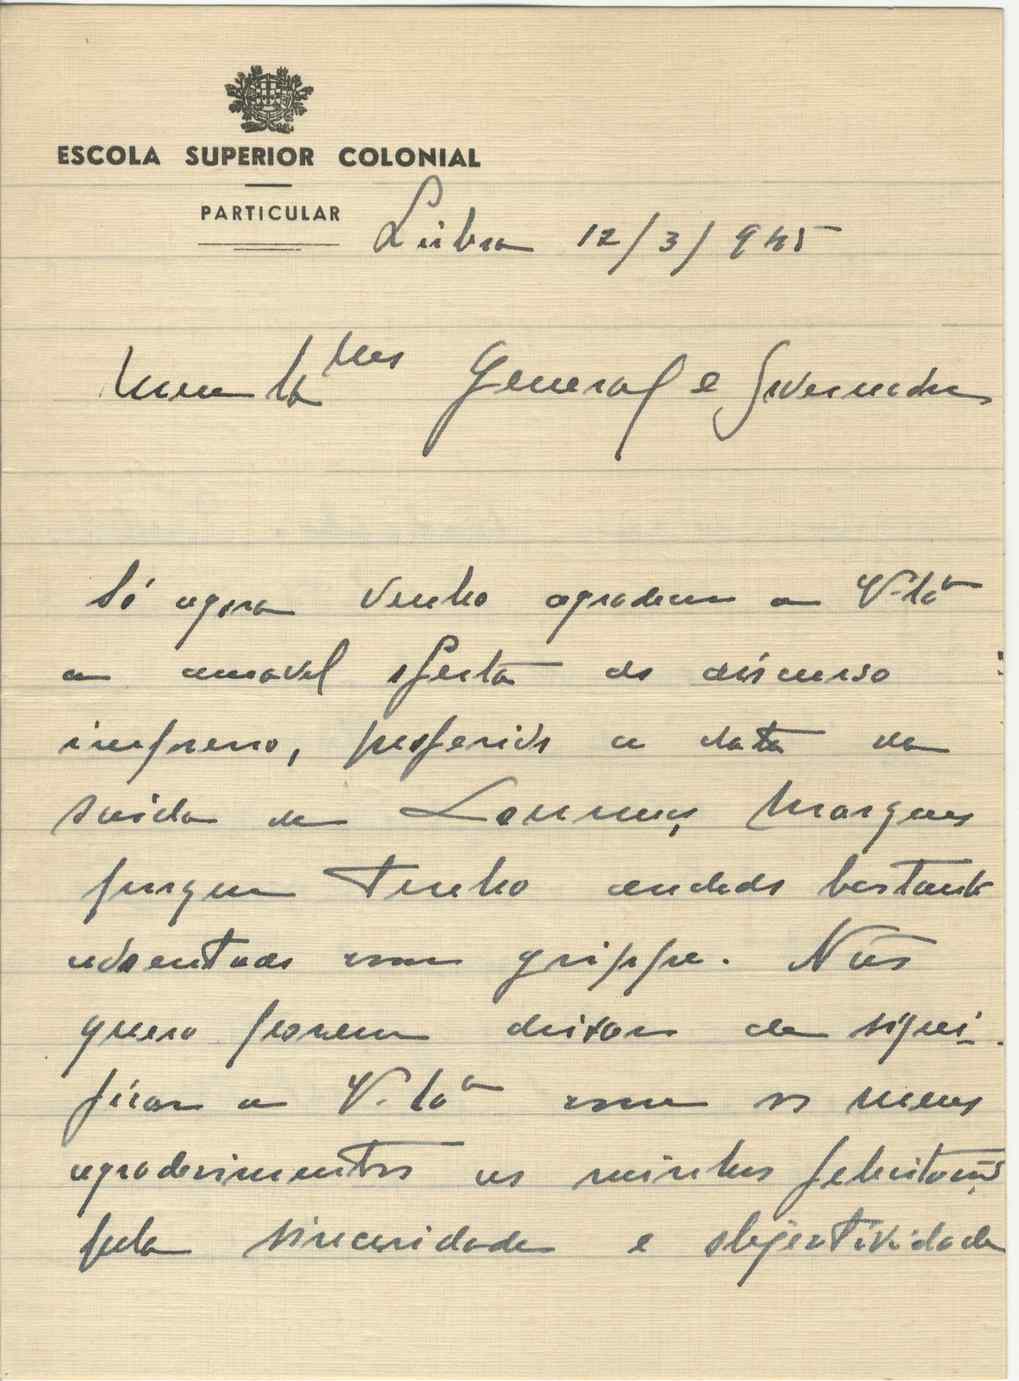 ESCOLA SUPERIOR COLONIAL
PARTICULAR
Lisboa 12/3/945
Meu General e Governador
Só agora venho agradecer a V. Exª
a amavel oferta do discurso
impresso, proferido a data da
saida de Lourenço Marques
porque tenho andado bastante
adoentado com grippe. Não
quero porem deixar de signi-
ficar a V. Exª com os meus
agradecimentos as minhas felicitações
pela sinceridade e objectividade